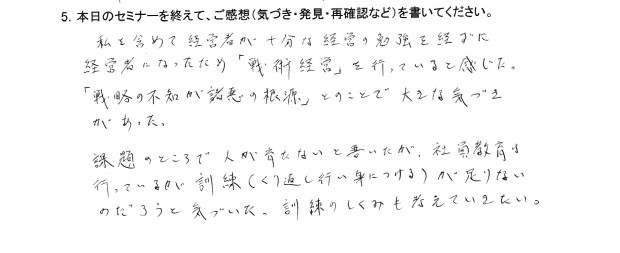 5. 本日のセミナーを終えて、ご感想（気づき・発見・再確認など）を書いてください。
私を含めて経営者が十分な経営の勉強を経ずに
経営者になったため「戦術経営」を行っていると感じた。
「戦略の不知が諸悪の根源」とのことで大きな気づき
があった。
課題のところで人が育たないと書いたが、社員教育は
行っているが訓練（くり返し行い身につける）が足りない
のだろうと気づいた。訓練のしくみも考えていきたい。